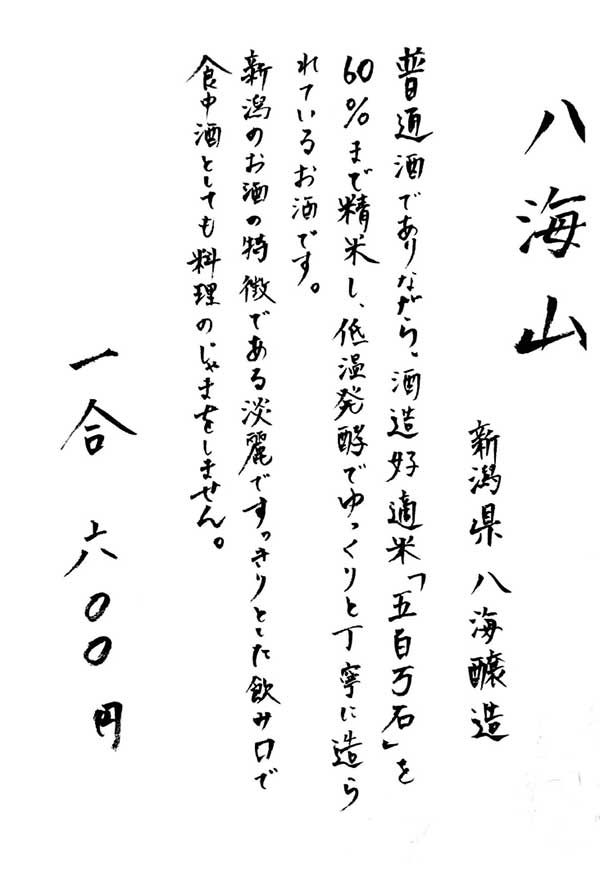 八海山
新潟県 八海醸造
普通酒でありながら、酒造好適米「五百万石」を
60%まで精米し、低温発酵でゆっくりと丁寧に造ら
れているお酒です。
新潟のお酒の特徴である淡麗ですっきりとした飲み口で
食中酒としても料理のじゃまをしません。
一合 六〇〇円